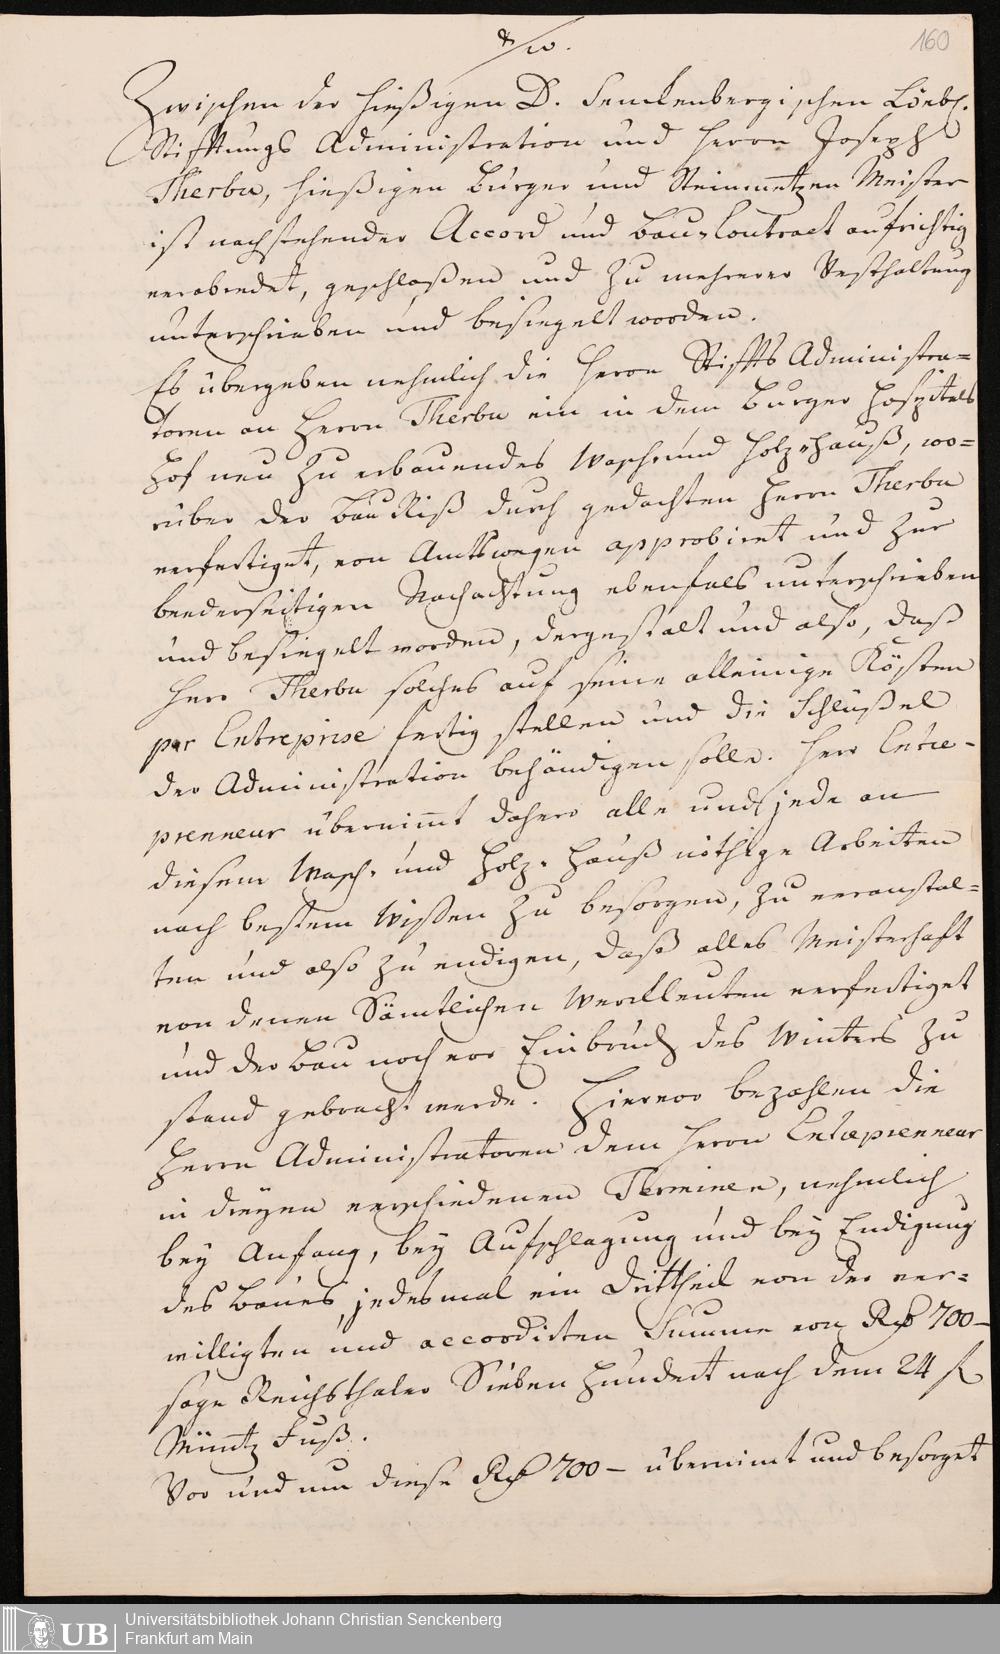 160
Zwischen der hießigen D. Senckenbergischen Löbl.
Stifftungs Administration und Herrn Joseph
Therbu, hießigen Burger und Steinmetzen Meister
ist nachstehender Accord und Bau-Contract aufrichtig
verabredet, geschloßen und zu mehrerer Vesthaltung
unterschrieben und besiegelt worden.
Es übergeben nehmlich die Herrn Stiffts Administra=
toren an Herrn Therbu ein in dem Burger Hospitals
Hof neu zu erbauendes Wasch und Holz-Hauß, wo=
rüber der Bau Riß durch gedachten Herrn Therbu
verfertiget, von Amtswegen approbiret und zur
beederseitigen Nachachtung ebenfals unterschrieben
und besiegelt worden, dergestalt und also, daß
Herr Therbu solches auf seine alleinige Kösten
par Entreprise fertig stellen und die Schlüßel
der Administration behändigen solle. Herr Entre-
prenneur übernimmt dahero alle und jede an
diesem Wasch- und Holz-Hauß nöthige Arbeiten
nach bestem Wißen zu besorgen, zu veranstal=
ten und also zu endigen, daß alles Meisterhaft
von denen Sämtlichen Werckleuten verfertiget
und der Bau noch vor Einbruch des Winters zu
stand gebracht werde. Hiervor bezahlen die
Herrn Administratoren dem Herrn Entreprenneur
in dreyen verschiedenen Terminen, nehmlich
bey Anfang, bey Aufschlagung und bey Endigung
des Baues, jedesmal ein Drittheil von der ver=
willigten und accordirten Summe von Rth 700-
sage Reichsthaler Sieben Hundert nach dem 24 f
Müntz Fuß.
Vor und um diese Rth 700- übernimt und besorget
UB
Universitätsbibliothek Johann Christian Senckenberg
Frankfurt am Main